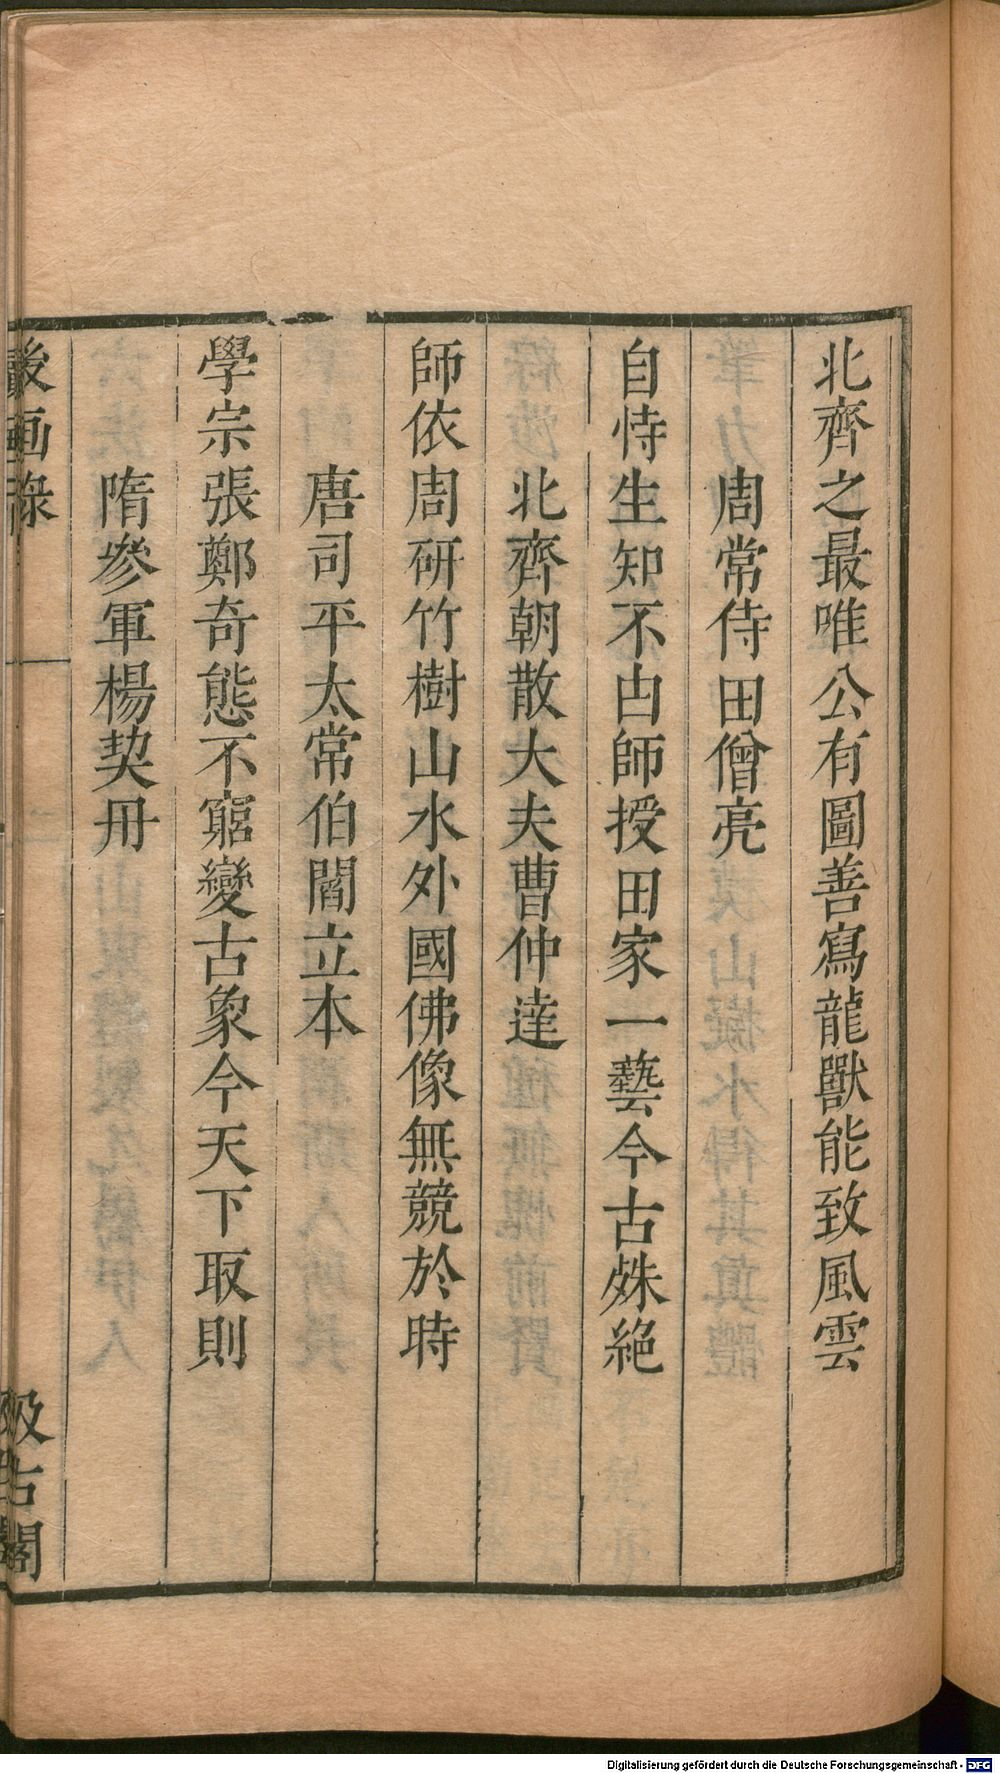 北齊之最唯公有圖善寫龍獸能致風雲
周常侍田僧亮
自恃生知不由師授田家一藝今古殊絕
北齊朝散大夫曹仲達
師依周研竹樹山水外國佛像無競於時
唐司平太常伯閻立本
學宗張鄭奇態不窮變古象今天下取則
隋參軍楊契丹
後画錄
二
汲古閣
Digitalisierung gefördert durch die Deutsche Forschungsgemeinschaft - DFG